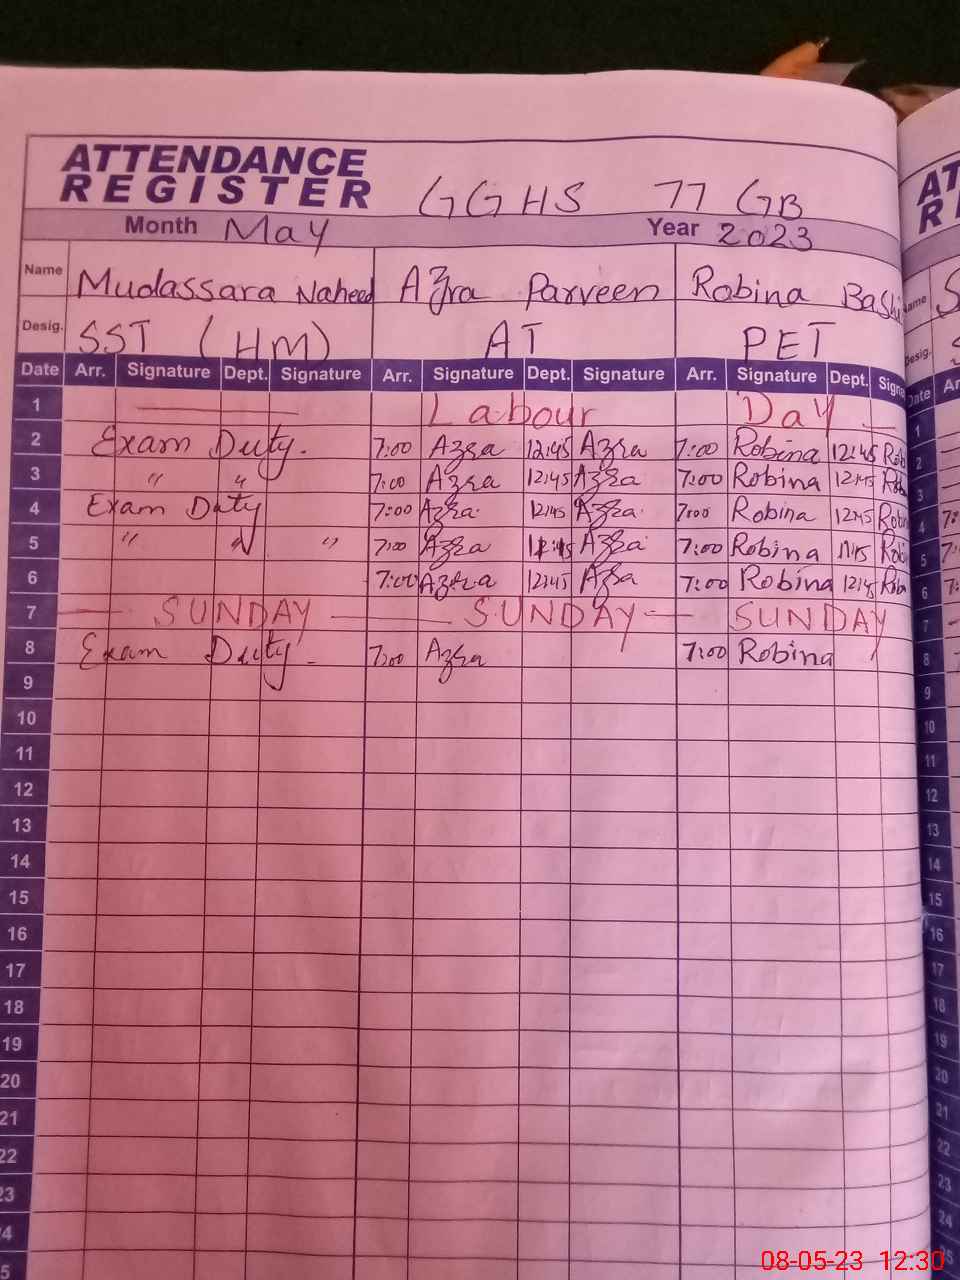 ATTENDANCE
REGISTER GGHS 77 GB
Month May Year 2023
Name Mudassara Naheed Azra Parveen Robina Bashi
Desig. SST (HM) AT PET
Date Arr. Signature Dept. Signature Arr. Signature Dept. Signature Arr. Signature Dept. Signa
1 Labour Day
2 Exam Duty. 7:00 Azra 12:45 Azra 7:00 Robina 12:45 Rob
3 " " 7:00 Azra 12:45 Azra 7:00 Robina 12:45 Rob
4 Exam Duty 7:00 Azra 12:45 Azra 7:00 Robina 12:45 Robi
5 " " " 7:00 Azra Azra 7:00 Robina Rob
6 7:00 Azra 12:45 Azra 7:00 Robina 12:45 Rob
7 SUNDAY SUNDAY SUNDAY
8 Exam Duty. 7:00 Azra 7:00 Robina
9
10
11
12
13
14
15
16
17
18
19
20
21
22
23
4
5
AT
R
Name S
Desig.
Date Ar
1
2
3
4 7:
5 7
6 7
7
8
9
10
11
12
13
14
15
16
17
18
19
20
21
22
23
24
08-05-23 12:30